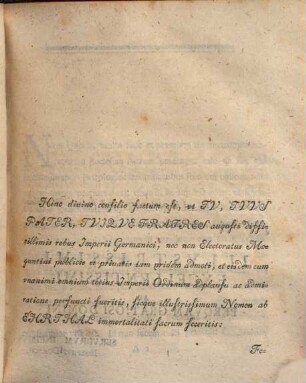 Hinc divino consilio factum est, ut TU, TUUS
PATER, TUIQUE FRATRES augustis diffi-
cillimis rebus Imperii Germanici, nec non Electoratus Mo-
guntini publicis et privatis jam pridem admoti, et iis cum
omnium totius Imperii Ordinum applausu ac admi-
ratione perfuncti fueritis, sicque illustrissimum Nomen ab
EHRTHAL immortalitati sacrum feceritis: